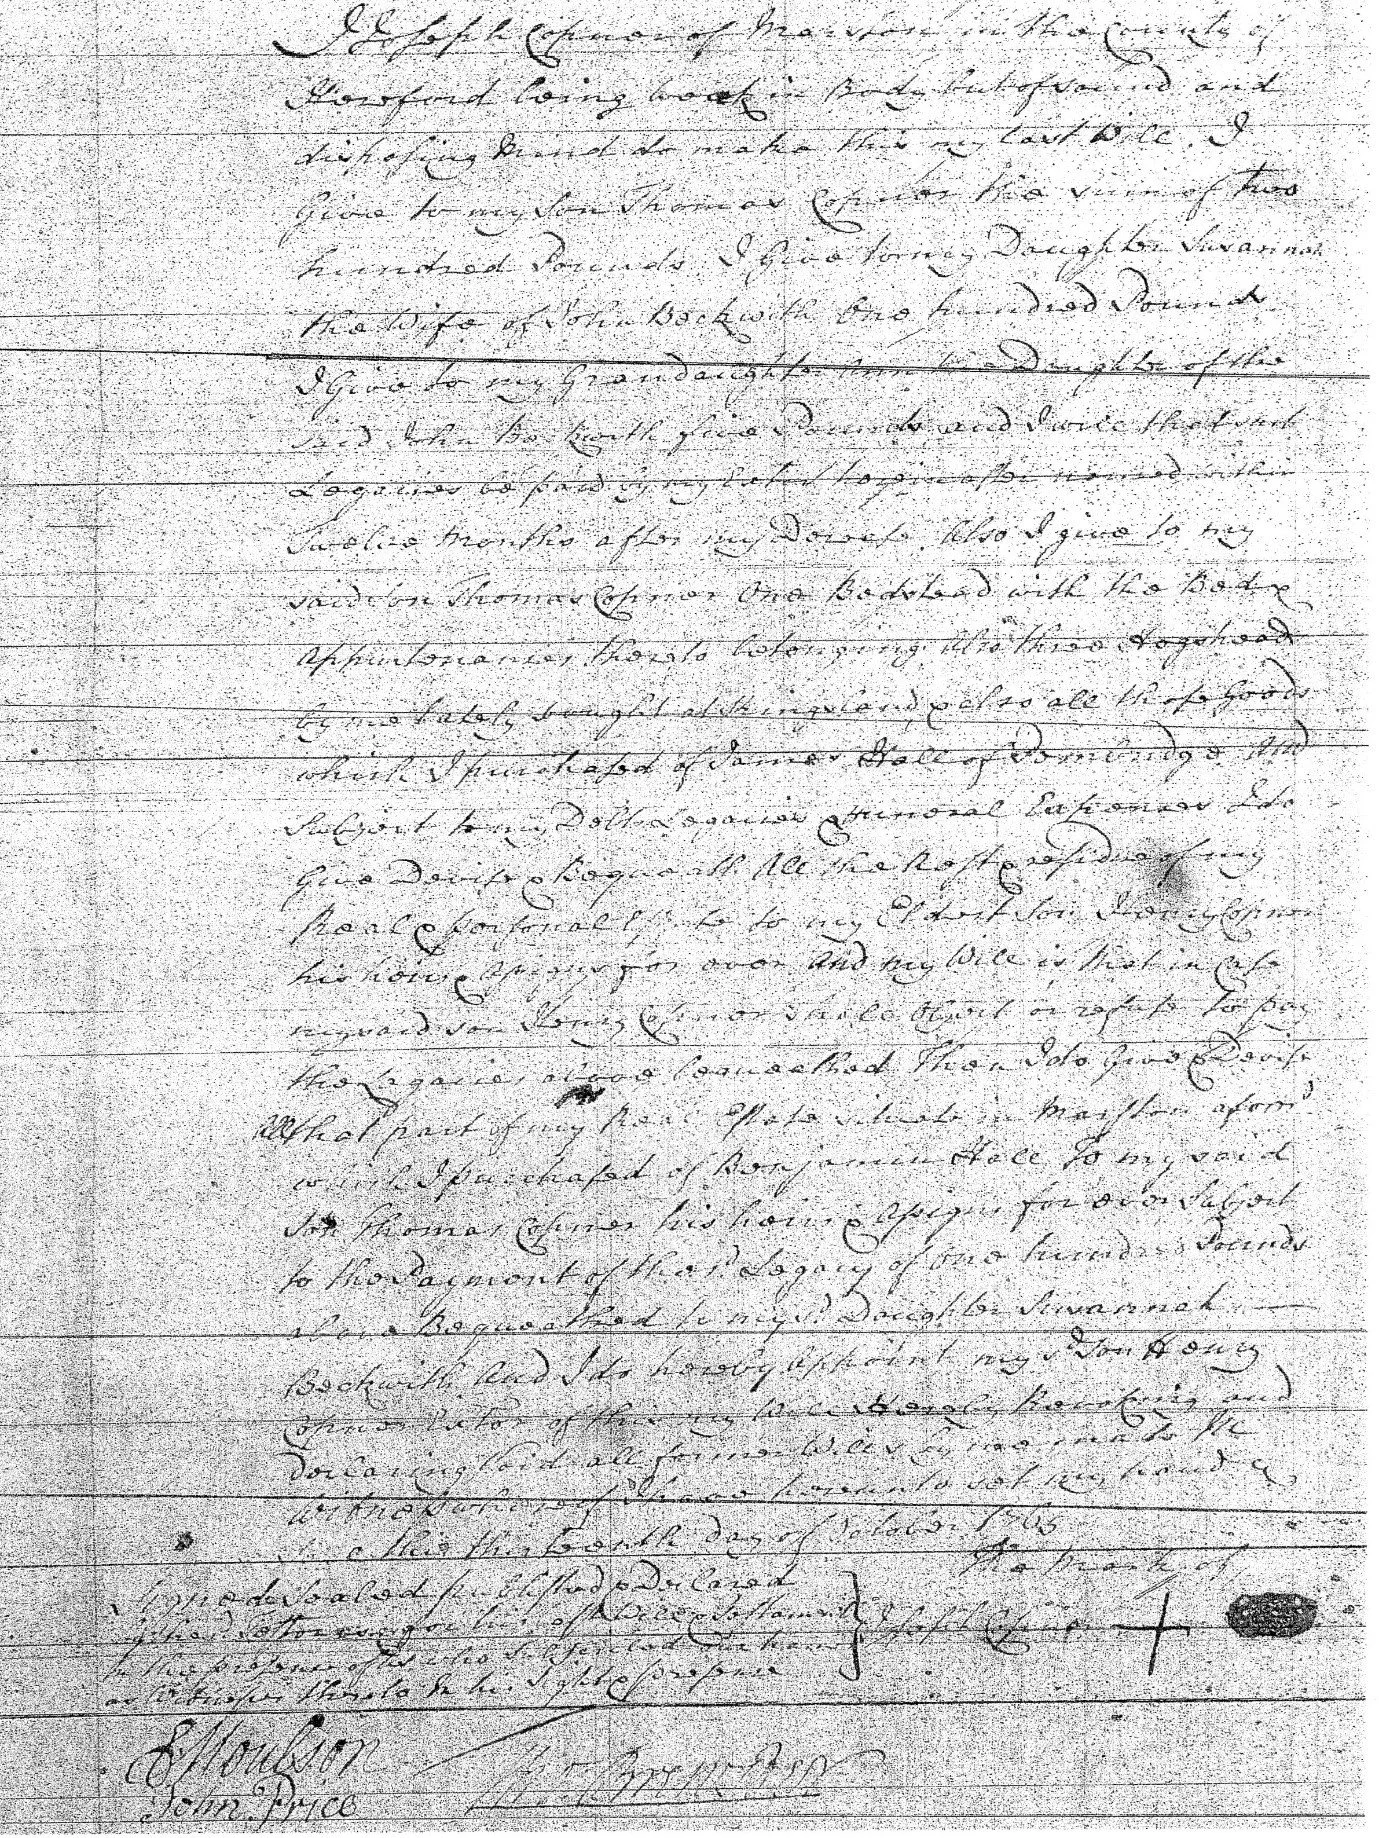 I Joseph Copner of Marston in the County of
Hereford being weak in Body but of sound and
disposing Mind do make this my last Will. I
Give to my Son Thomas Copner the sum of two
hundred Pounds I Give to my Daughter Susannah
the Wife of John Beckwith One hundred Pounds
I Give to my Grandaughter Ann the Daughter of the
said John Beckwith five Pounds and I will that such
Legacies be paid by my Extor hereinafter named within
Twelve Months after my Decease Also I give to my
said Son Thomas Copner One Bedstead with the Bed &
Appurtenances thereto belonging Also three Hogsheads
by me lately bought at Kingsland & also all those Goods
which I purchased of James Hall of Pembridge And
Subject to my Debts Legacies & Funeral Expences I do
Give Devise & Bequeath All the Rest & residue of my
Real & personal Estate to my Eldest Son Henry Copner
his heirs & Assigns for ever And my Will is that in Case
my said son Henry Copner shall or refuse to pay
the Legacies above bequeathed Then I do Give & Devise
All that part of my Real Estate situate in Marston aforesd
which I purchased of Benjamin Hall To my said
Son Thomas Copner his heirs & Assigns for ever Subject
to the Payment of the sd. Legacy of One hundred Pounds
above Bequeathed to my sd. Daughter Susannah
Beckwith And I do hereby Appoint my sd. Son Henry
Copner Extor of this my Will Hereby Revoking and
declaring Void all former Wills by me made In
Witness whereof I have hereunto set my hand &
this thirteenth day of October 1765
The Mark of
Signed Sealed published & Declared
by the sd. Testator as & for his last Will & Testament
In the presence of us who subscribed our hands
as Witnesses thereto in his Sight & presence
Joseph Copner +
E Moulson
John Price